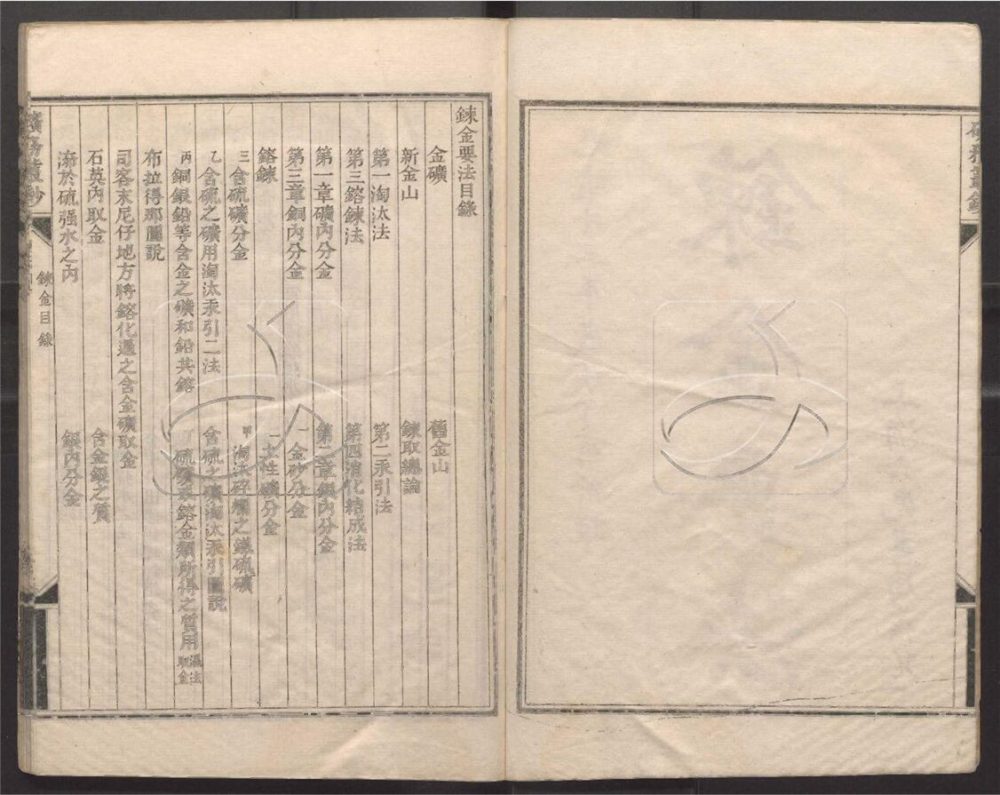 鍊金要法目錄
金礦 舊金山
新金山 鍊取總論
第一淘汰法 第二汞引法
第三鎔鍊法 第四消化精成法
第一章礦內分金 第二章銀內分金
第三章銅內分金 一金砂分金
鎔鍊 二土性礦分金
三含硫礦分金 甲淘汰碎礦之鐵硫礦
乙含硫之礦用淘汰汞引二法 含硫之礦淘汰汞引圖說
丙銅銀鉛等含金之礦和鉛共鎔 硫礦求鎔金類所得之質用濕法取金
布拉得那圖說
司客末尼仔地方將鎔化過之含金礦取金
石英內取金 含金銀之質
溶於硫强水之內 銀內分金
鍊金目錄